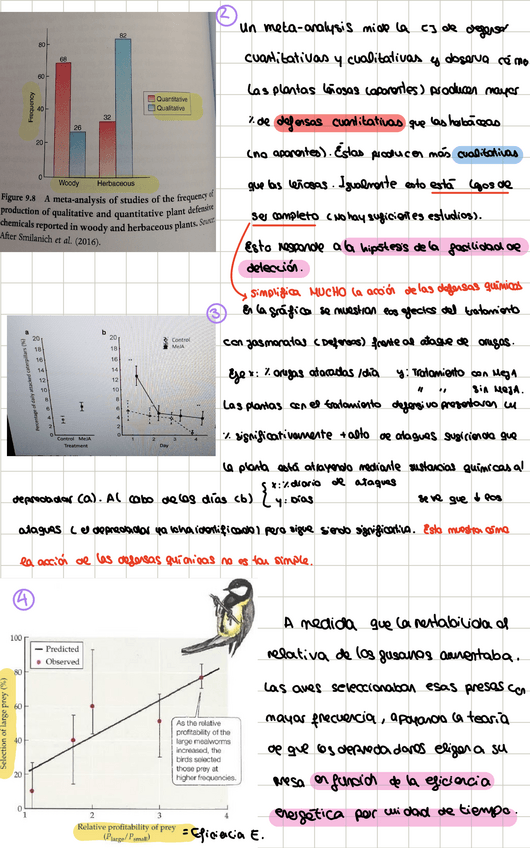 ②
Un meta-analysis mide la [] de defensas
cuantitativas y cualitativas y observa cómo
las plantas leñosas (aparentes) producen mayor
% de defensas cuantitativas que las herbáceas
(no aparentes). Éstas producen más cualitativas
que las leñosas. Igualmente esto está lejos de
ser completo (no hay suficientes estudios).
Esto responde a la hipótesis de la facilidad de
detección.
simplifica MUCHO la acción de las defensas químicas
80
60
40
20
0
68
26
32
82
Frequency
Quantitative
Qualitative
Woody
Herbaceous
Figure 9.8 A meta-analysis of studies of the frequency of
production of qualitative and quantitative plant defensive
chemicals reported in woody and herbaceous plants. Source:
After Smilanich et al. (2016).
③
En la gráfica se muestran los efectos del tratamiento
con jasmonatos (defensas) frente al ataque de orugas.
Eje x: % orugas atacadas/día y: Tratamiento con MeJA
" " sin MeJA.
Las plantas con el tratamiento defensivo presentaron un
% significativamente + alto de ataques sugiriendo que
la planta está atrayendo mediante sustancias químicas al
depredador (a). Al cabo de los días (b) { x: % diario de ataques
y: Días
se ve que ↓ los
ataques (el depredador ya lo ha identificado) pero sigue siendo significativa. Esto muestra cómo
la acción de las defensas químicas no es tan simple.
a
b
Percentage of daily attacked caterpillars (%)
20
18
16
14
12
10
8
6
4
2
0
Control MeJA
Treatment
20
18
16
14
12
10
8
6
4
2
0
Control
MeJA
**
**
1 2 3 4
Day
④
A medida que la rentabilidad
relativa de los gusanos aumentaba.
Las aves seleccionaban esas presas con
mayor frecuencia, apoyando la teoría
de que los depredadores eligen a su
presa en función de la eficiencia
energética por unidad de tiempo.
100
80
60
40
20
0
Selection of large prey (%)
Predicted
Observed
As the relative
profitability of the
large mealworms
increased, the
birds selected
those prey at
higher frequencies.
1 2 3 4
Relative profitability of prey
(Plarge/Psmall)
= Eficiencia E.